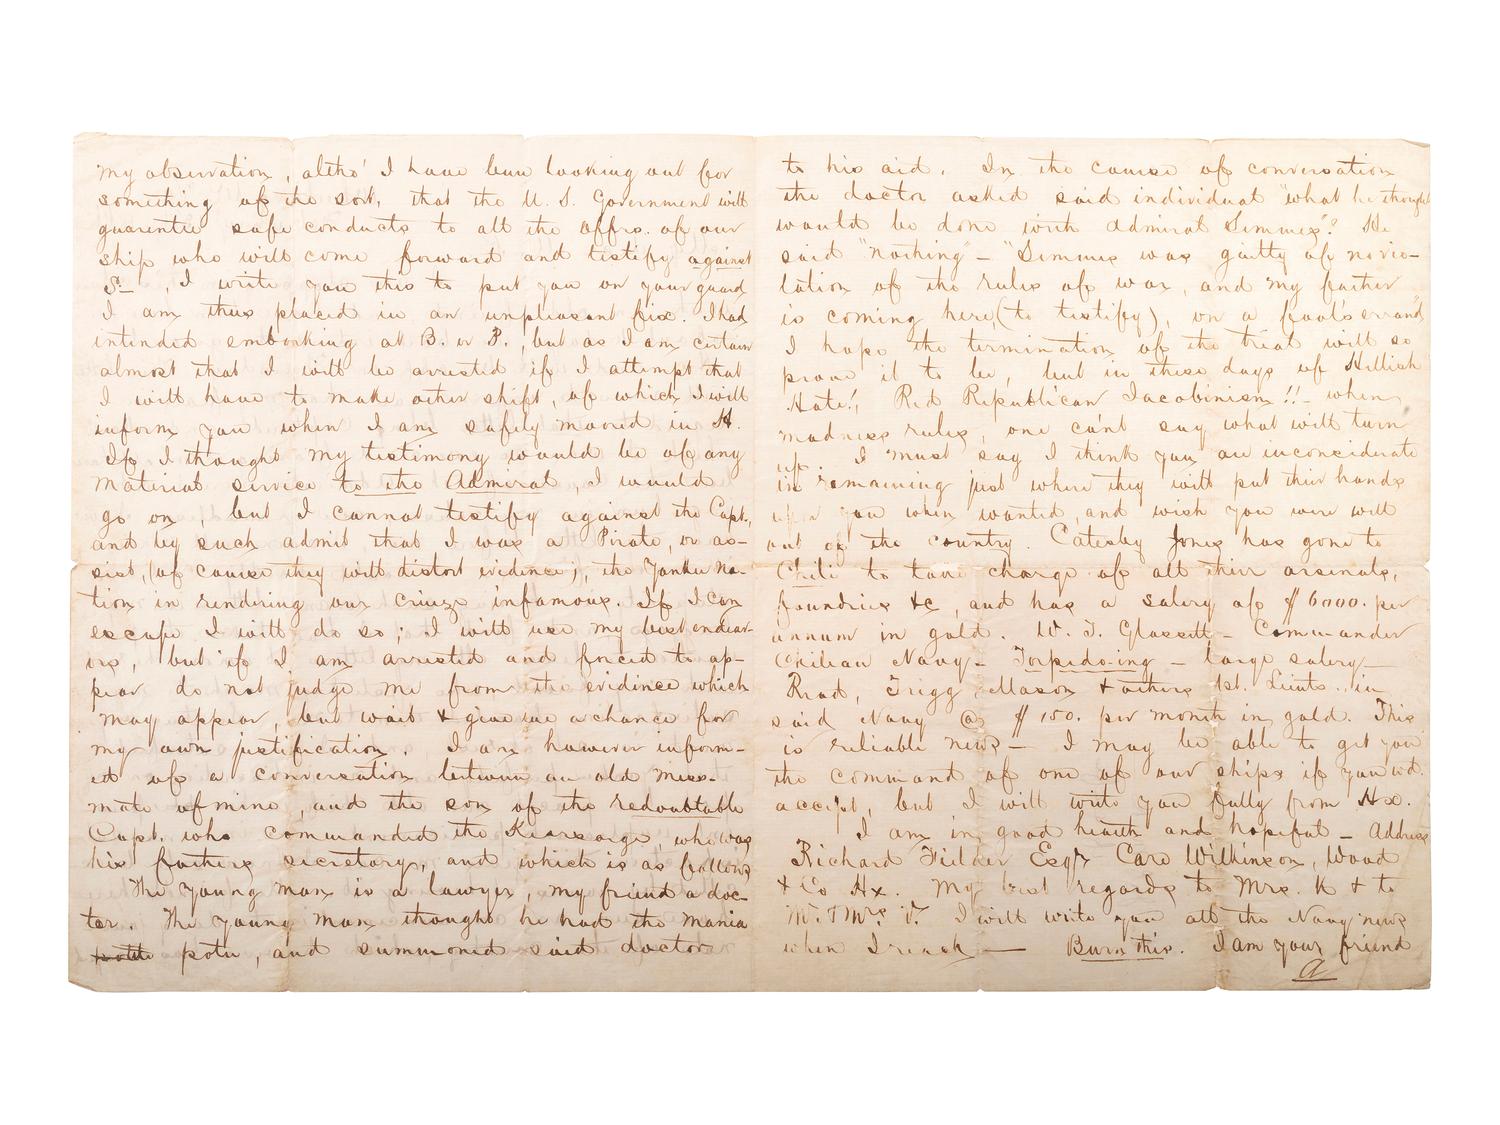 my observation, altho' I have been looking out for
something of the sort, that the U. S. Government will
guarentee safe conducts to all the offrs. of our
ship who will come forward and testify against
S—, I write you this to put you on your guard
I am thus placed in an unpleasant fix. I had
intended embarking at B. or P., but as I am certain
almost that I will be arrested if I attempt that
I will have to make other shift, of which I will
inform you when I am safely moored in H.
If I thought my testimony would be of any
material service to the Admiral, I would
go on, but I cannot testify against the Capt.,
and by such admit that I was a Pirate, or as-
sist, (of course they will distort evidence), the Yankee Na-
tion in rendering our cruize infamous. If I can
escape I will do so; I will use my best endeav-
ors, but if I am arrested and forced to ap-
pear do not judge me from the evidence which
may appear, but wait & give me a chance for
my own justification. I am however inform-
ed of a conversation between an old mess-
mate of mine, and the son of the redoubtable
Capt. who commanded the Kearsarge, who was
his fathers secretary, and which is as follows
The young man is a lawyer, my friend a doc-
tor. The young man thought he had the mania
potu, and summoned said doctor
to his aid. In the course of conversation
the doctor asked said individual "what he thought
would be done with Admiral Semmes"? He
said "nothing" — "Semmes was guilty of no vio-
lation of the rules of war, and my father
is coming here, (to testify), on a fool's errand"
I hope the termination of the trial will so
prove it to be, but in these days of Hellish
Hate!, Red Republican Jacobinism!! — when
madness rules, one can't say what will turn
up. I must say I think you are inconsiderate
in remaining just where they will put their hands
upon you when wanted, and wish you were well
out of the country. Catesby Jones has gone to
Chili to take charge of all their arsenals,
foundries &c, and has a salary of $6000. per
annum in gold. W. J. Glassell — Commander
Chilian Navy — Torpedo-ing — large salary —
Read, Trigg, Mason & others 1st. Lieuts. in
said Navy @ $150. per month in gold. This
is reliable news — I may be able to get you
the command of one of our ships if you wd.
accept, but I will write you fully from Hx.
I am in good health and hopeful — Address
Richard Fielder Esqr Care Wilkinson, Wood
& Co Hx. My best regards to Mrs. K & to
Mr. & Mrs. V. I will write you all the Navy news
when I reach — Burn this. I am your friend
A